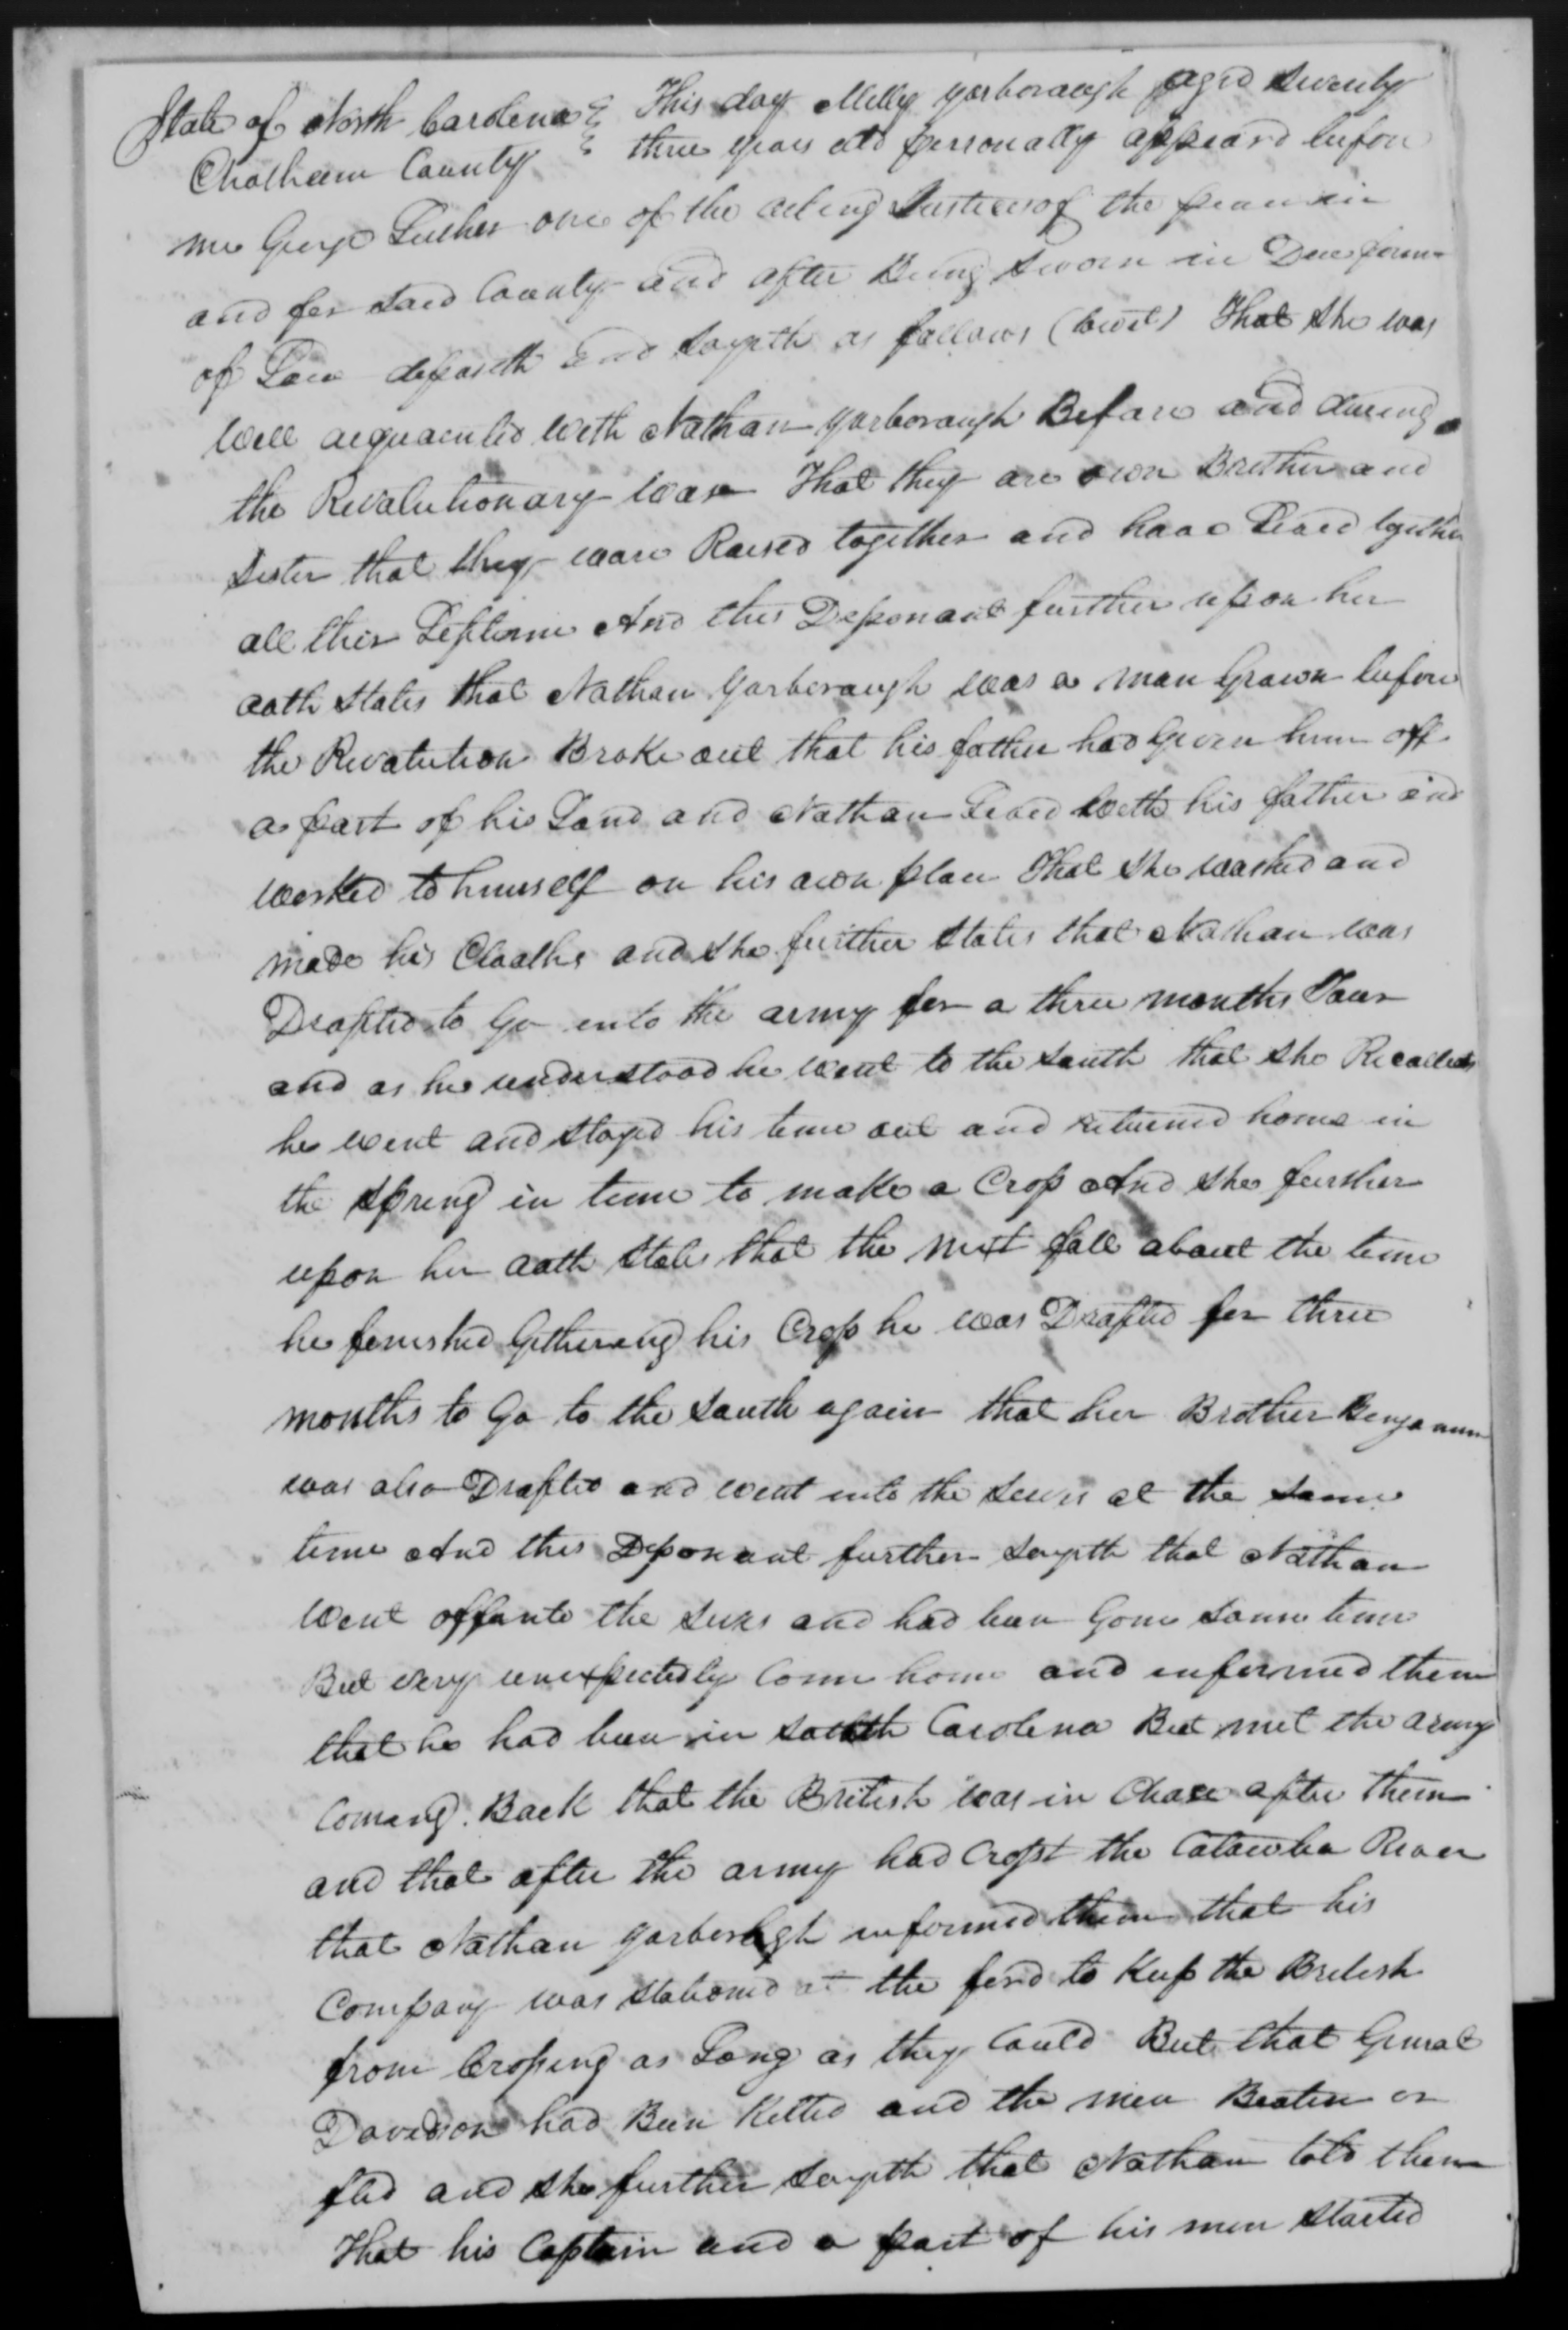 State of North Carolina } This day Milly yarborough aged Seventy
Chatham County } three years old personally appeard before
me George Luther one of the acting Justices of the peace in
and for Said County and after Being Sworn in Due form
of Law deposeth and Sayeth as follows (towit) That She was
Well acquainted With Nathan yarborough Before and during
the Revolutionary War That they are own Brother and
Sister that they ware Raised together and have Lived together
all their Lifetime And this Deponant further upon her
oath States that Nathan Yarborough was a man Grown before
the Revolution Broke out that his father had Given him off
a part of his Land and Nathan Lived With his father and
Worked to himself on his own place That She washed and
made his Cloaths and She further States that Nathan was
Drafted to Go into the army for a three months Tour
and as he understood he went to the South that She Recollects
he went and Stayed his time out and returned home in
the Spring in time to make a Crop And She further
upon her oath States that the next fall about the time
he finished Gethering his Crop he was Drafted for three
months to Go to the South again that her Brother Benjamin
was also Drafted and went into the Servis at the Same
time And this Deponant further Sayeth that Nathan
Went off into the Servis and had been Gone Some time
But very unexpectedly Come home and informed them
that he had been in South Carolina But met the army
Coming Back that the British was in Chase after them
and that after the army had Crosst the Catawba River
that Nathan yarborough informed them that his
Company was Stationed at the ford to Keep the British
from Crossing as Long as they Could But that General
Davidson had Been Killed and the men Beaten or
fled and She further Sayeth that Nathan told them
That his Captain and a part of his men Started